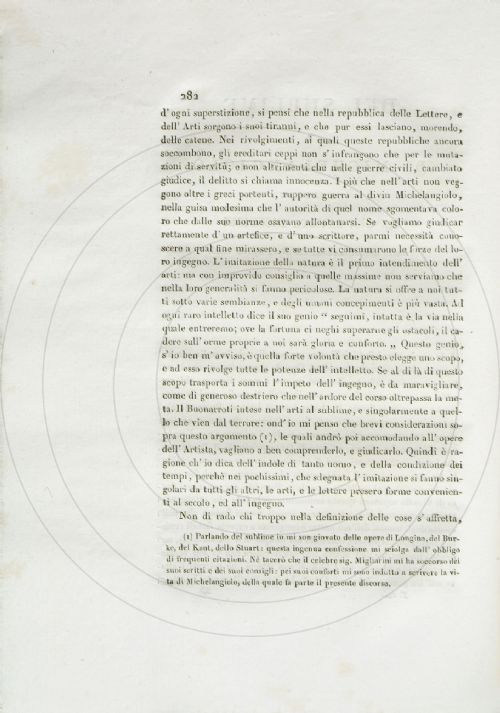 282
d' ogni superstizione, si pensi che nella repubblica delle Lettere, e
dell' Arti sorgono i suoi tiranni, e che pur essi lasciano, morendo,
delle catene. Nei rivolgimenti, ai quali queste repubbliche ancora
soccombono, gli ereditari ceppi non s' infrangono che per le muta-
zioni di servitù; e non altrimenti che nelle guerre civili, cambiato
giudice, il delitto si chiama innocenza. I più che nell' arti non veg-
gono oltre i greci portenti, ruppero guerra al divin Michelangiolo,
nella guisa medesima che l' autorità di quel nome sgomentava colo-
ro che dalle sue norme osavano allontanarsi. Se vogliamo giudicar
rettamente d' un artefice, e d' uno scrittore, parmi necessità cono-
scere a qual fine mirassero, e se tutte vi consumarono le forze del lo-
ro ingegno. L' imitazione della natura è il primo intendimento dell'
arti: ma con improvido consiglio a quelle massime non serviamo che
nella loro generalità si fanno pericolose. La natura si offre a noi tut-
ti sotto varie sembianze, e degli umani concepimenti è più vasta. Ad
ogni raro intelletto dice il suo genio " seguimi, intatta è la via nella
quale entreremo; ove la fortuna ci neghi superarne gli ostacoli, il ca-
dere sull' orme proprie a noi sarà gloria e conforto. „ Questo genio,
s' io ben m' avviso, è quella forte volontà che presto elegge uno scopo,
e ad esso rivolge tutte le potenze dell' intelletto. Se al di là di questo
scopo trasporta i sommi l' impeto dell' ingegno, è da maravigliare,
come di generoso destriero che nell' ardore del corso oltrepassa la me-
ta. Il Buonarroti intese nell' arti al sublime, e singolarmente a quel-
lo che vien dal terrore: ond' io mi penso che brevi considerazioni so-
pra questo argomento (1), le quali andrò poi accomodando all' opere
dell' Artista, vagliono a ben comprenderlo, e giudicarlo. Quindi è ra-
gione ch' io dica dell' indole di tanto uomo, e della condizione dei
tempi, perchè nei pochissimi, che sdegnata l' imitazione si fanno sin-
golari da tutti gli altri, le arti, e le lettere presero forme convenien-
ti al secolo, ed all' ingegno.
Non di rado chi troppo nella definizione delle cose s' affretta,
(1) Parlando del sublime io mi son giovato delle opere di Longino, del Bur-
ke, del Kant, dello Stuart: questa ingenua confessione mi sciolga dall' obbligo
di frequenti citazioni. Nè tacerò che il celebre sig. Migliarini mi ha soccorso dei
suoi scritti e dei suoi consigli: pei suoi conforti mi sono indotto a scrivere la vi-
ta di Michelangiolo, della quale fa parte il presente discorso.